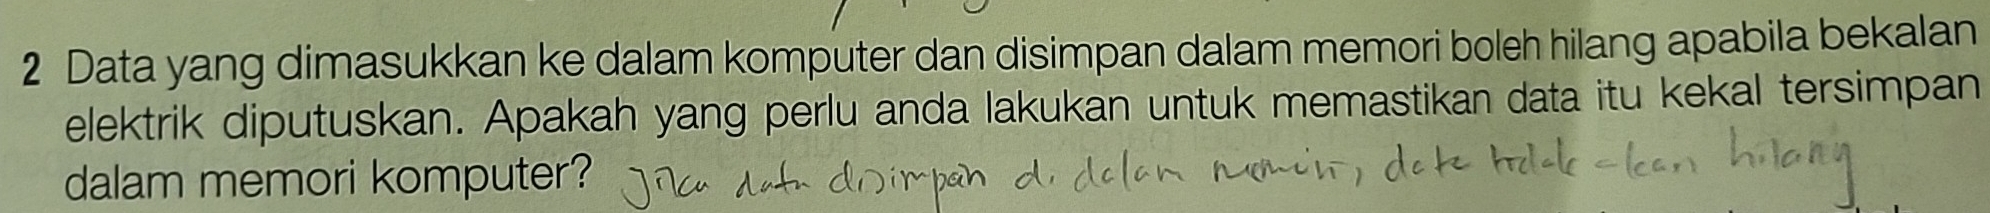 2 Data yang dimasukkan ke dalam komputer dan disimpan dalam memori boleh hilang apabila bekalan
elektrik diputuskan. Apakah yang perlu anda lakukan untuk memastikan data itu kekal tersimpan
dalam memori komputer? Jika data disimpan di dalam memori, data tidak akan hilang